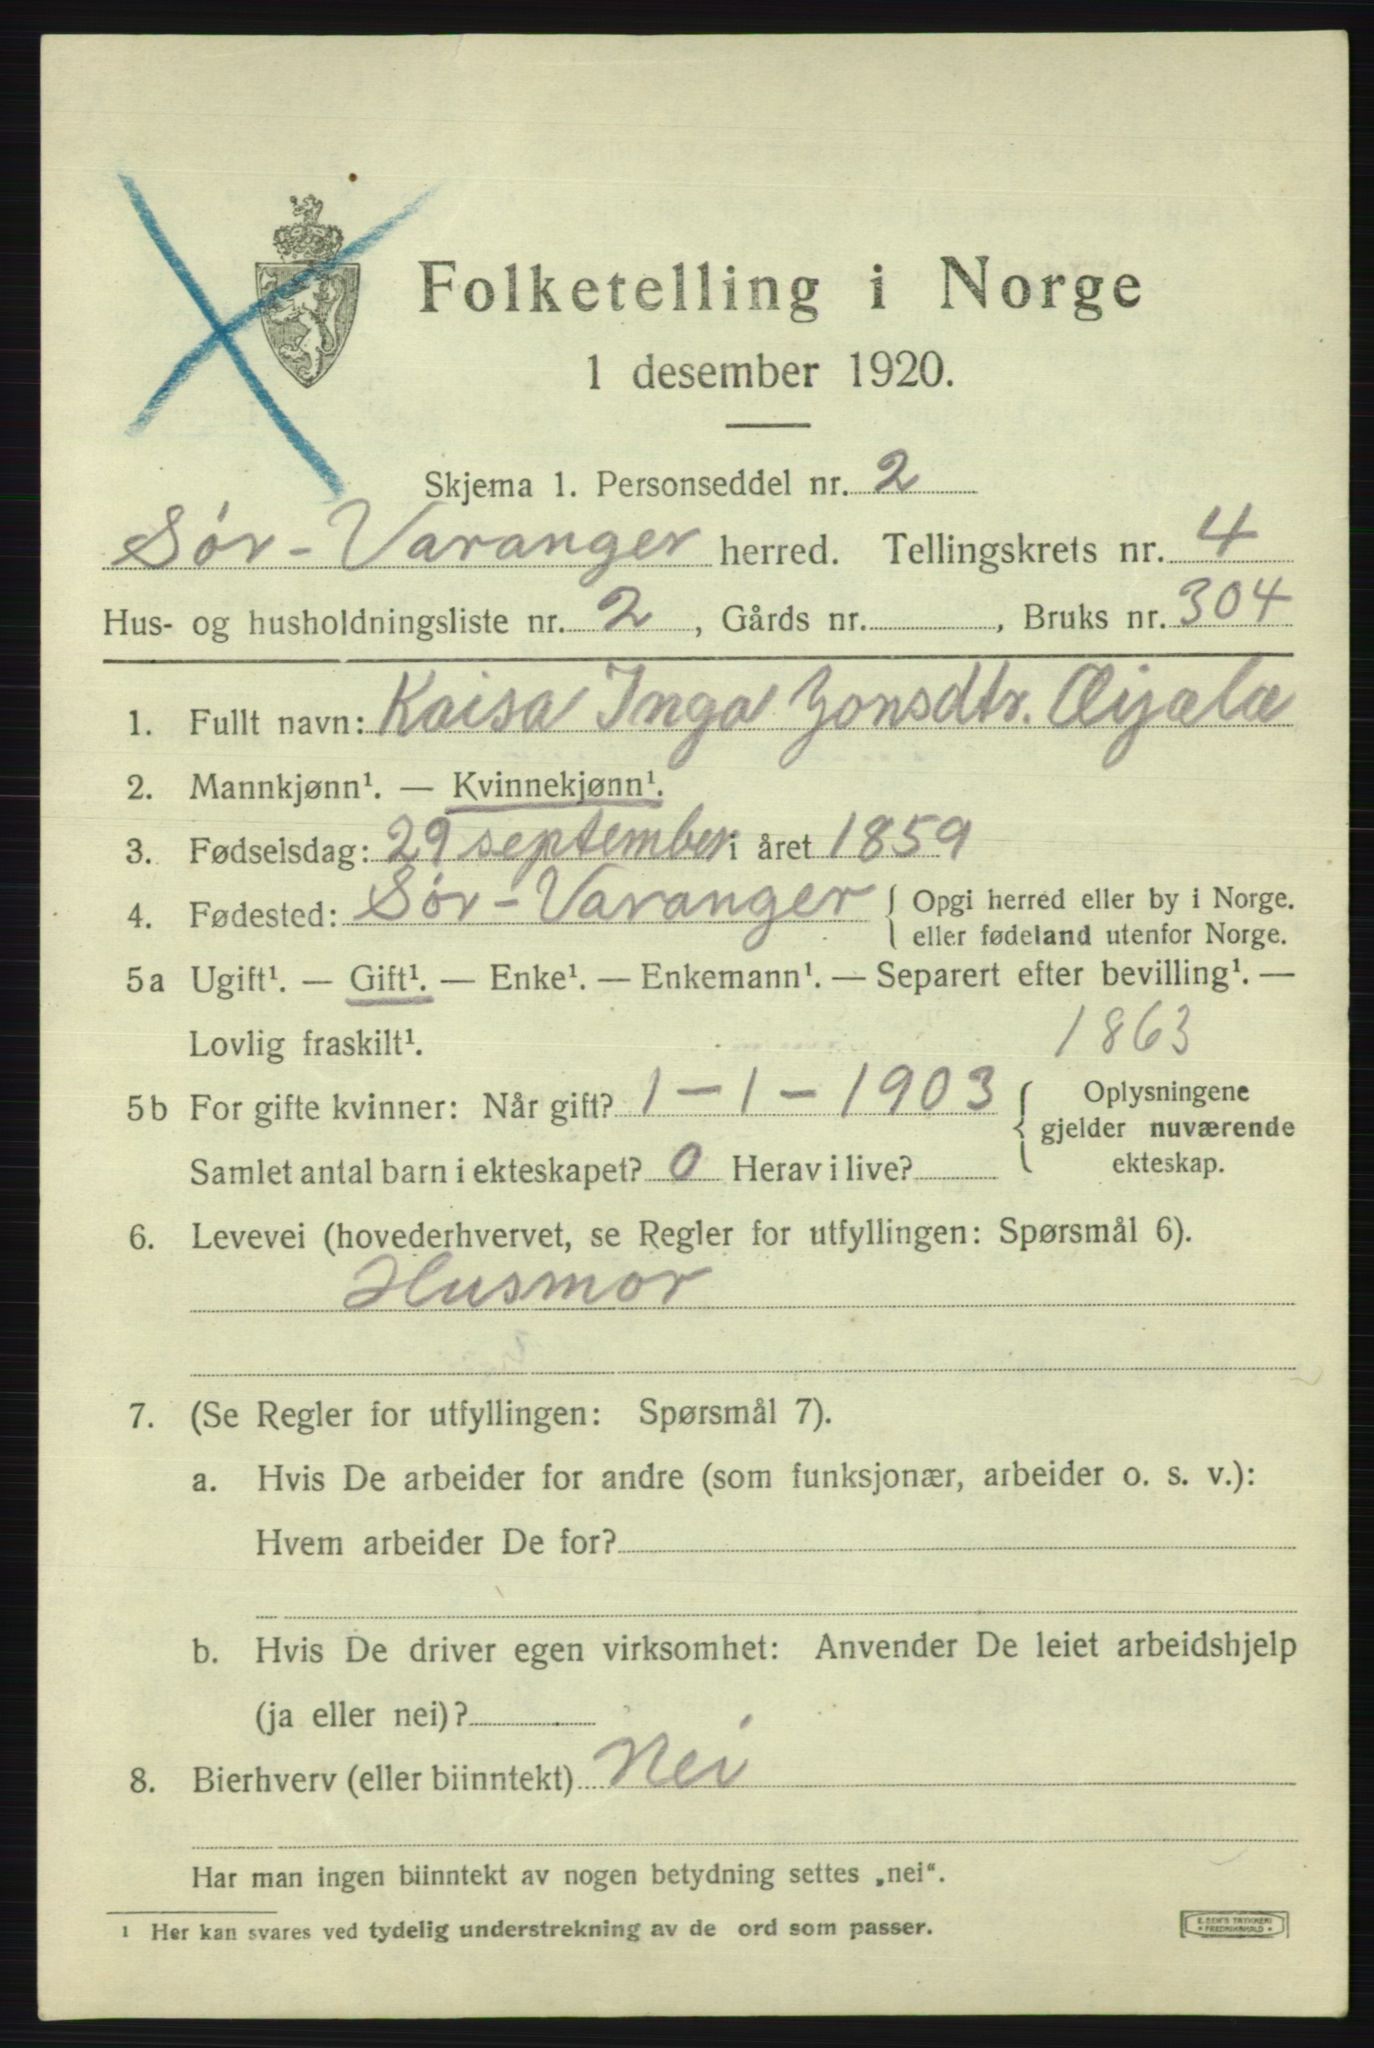 Folketelling i Norge
1 desember 1920.
Skjema 1. Personseddel nr. 2
Sør-Varanger herred. Tellingskrets nr. 4
Hus- og husholdningsliste nr. 2, Gårds nr. , Bruks nr. 304
1. Fullt navn: Kaisa Inga Jonsdtr.
2. Mannkjønn¹. — Kvinnekjønn¹.
3. Fødselsdag: 29 september i året 1859
4. Fødested: Sør-Varanger { Opgi herred eller by i Norge.
eller fødeland utenfor Norge.
5a Ugift¹. — Gift¹. — Enke¹. — Enkemann¹. — Separert efter bevilling¹. —
Lovlig fraskilt¹. 1863
5b For gifte kvinner: Når gift? 1-1-1903 { Oplysningene
gjelder nuværende
Samlet antal barn i ekteskapet? 0 Herav i live? ekteskap.
6. Levevei (hovederhvervet, se Regler for utfyllingen: Spørsmål 6).
Husmor
7. (Se Regler for utfyllingen: Spørsmål 7).
a. Hvis De arbeider for andre (som funksjonær, arbeider o. s. v.):
Hvem arbeider De for?
b. Hvis De driver egen virksomhet: Anvender De leiet arbeidshjelp
(ja eller nei)?
8. Bierhverv (eller biinntekt) Nei
Har man ingen biinntekt av nogen betydning settes „nei“.
¹ Her kan svares ved tydelig understrekning av de ord som passer.
E. SEM'S TRYKKERI
FREDRIKSHALD